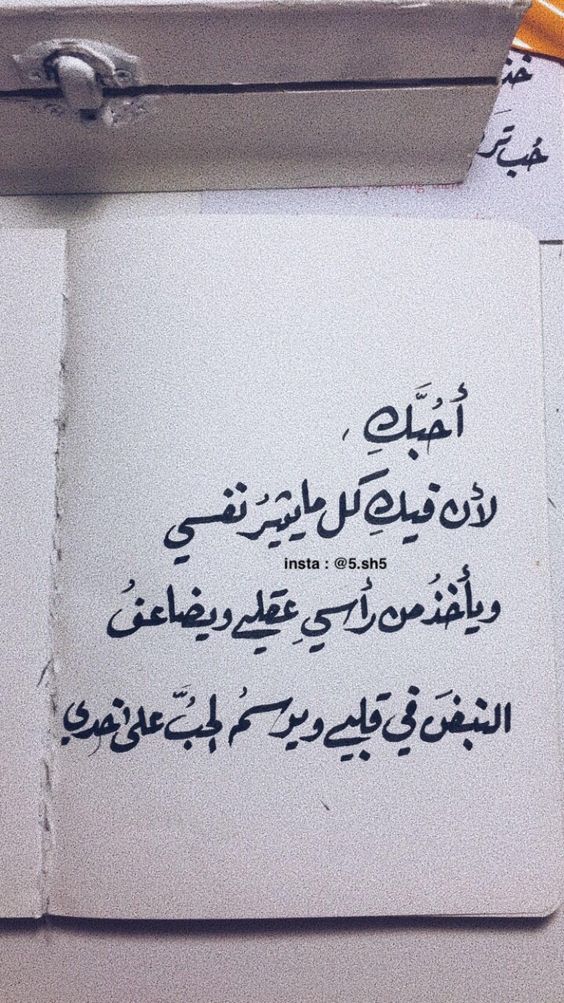 خذ
حُب تر
أُحُبَّكِ ،
لأن فيكِ كل ما يثيرُ نفسي
insta : @5.sh5
ويأخذُ من رأسي عقلي ويضاعفُ
النبضَ في قلبي ويرسمُ الحُبَّ على خدي